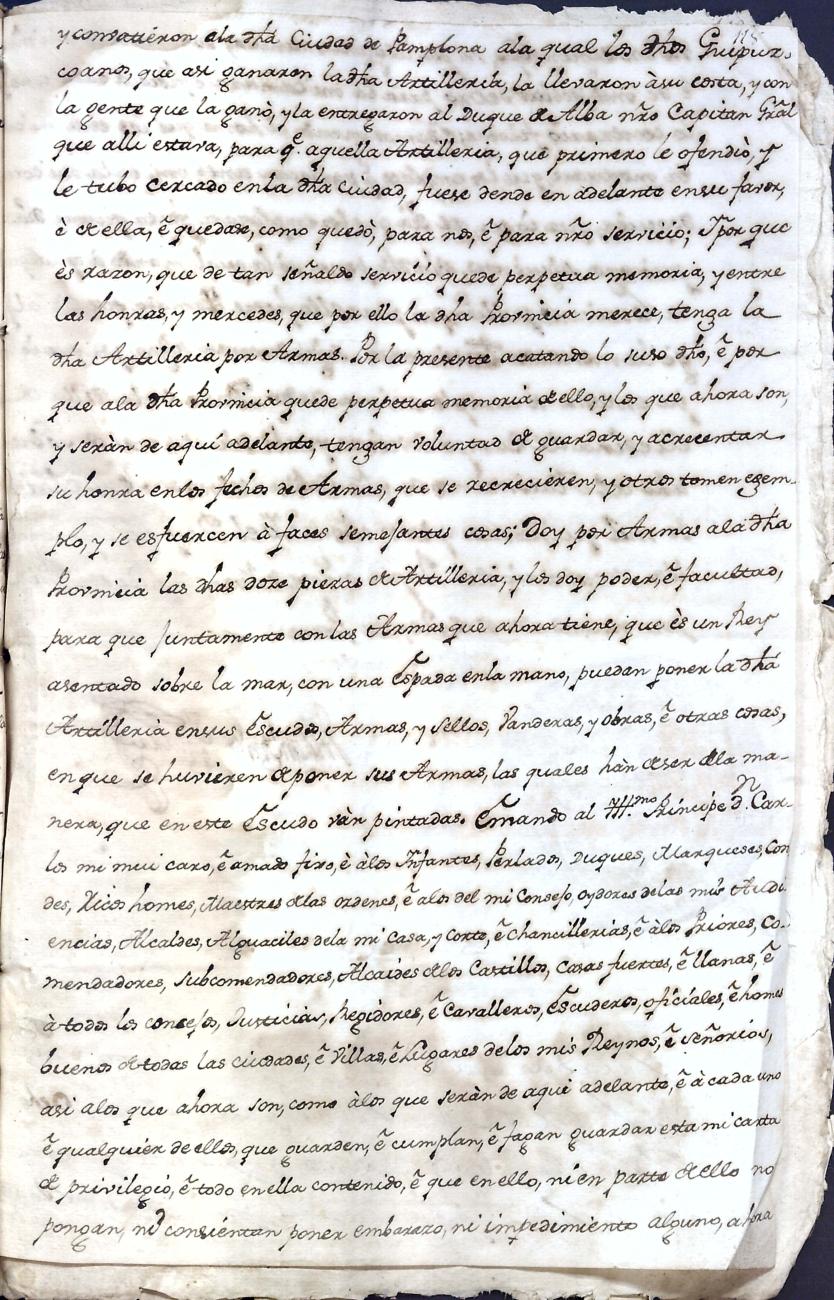 y convatieron ala dha Ciudad de Pamplona ala qual los dhos Guipuz-
coanos, que asi ganaron la dha Artilleria, la llevaron à su costa, y con
la gente que la ganò, y la entregaron al Duque de Alba nro Capitan Gral
que alli estava, para q.e aquella Artilleria, que primero le ofendiò, y
le tubo cercado enla dha Ciudad, fuese dende en adelante en su favor,
è de ella, ē quedase, como quedò, para nos, ē para nrõ servicio; Y por que
ès razon, que de tan señaldo servicio quede perpetua memoria, y entre
las honras, y mercedes, que por ello la dha Provincia merece, tenga la
dha Artilleria por Armas. Por la presente acatando lo suso dho, ē por
que ala dha Provincia quede perpetua memoria de ello, y los que ahora son,
y seràn de aqui adelante, tengan voluntad de guardar, y acrecentar
su honra en los fechos de Armas, que se recrecieren, y otros tomen egem-
plo, y se esfuercen à faces semejantes cosas; Doy por Armas ala dha
Provincia las dhas doze piezas de Artilleria, y les doy poder, ē facultad,
para que juntamente con las Armas que ahora tiene, que ès un Rey
asentado sobre la mar, con una Espada enla mano, puedan poner la dha
Artilleria en sus Escudos, Armas, y Sellos, Vanderas, y obras, ē otras cosas,
en que se huvieren de poner sus Armas, las quales hàn de ser de la ma-
nera, que en este Escudo vàn pintadas. Emando al Ill.mo Principe d.n Car-
los mi mui caro, ē amado fixo, è àlos Infantes, Perlados, Duques, Marqueses, Con
des, Ricos homes, Maestres de las ordenes, ē alos del mi Consejo, oydores de las mis Audi
encias, Alcaldes, Alguaciles dela mi Casa, y Corte, ē Chancillerias, ē àlos Priores, Co-
mendadores, subcomendadores, Alcaides de los Castillos, Casas fuertes, ē llanas, ē
à todos los consejos, Justicias, Regidores, ē Cavalleros, Escuderos, oficiales, ē homes
buenos de todas las ciudades, ē Villas, ē Lugares de los mis Reynos, ē señorios,
asi alos que ahora son, como àlos que seràn de aqui adelante, ē à cada uno
ē qualquier de ellos, que guarden, ē cumplan, ē fagan guardar esta mi carta
de privilegio, ē todo en ella contenido, ē que en ello, ni en parte de ello no
pongan, ni consientan poner embarazo, ni impedimiento alguno, ahora